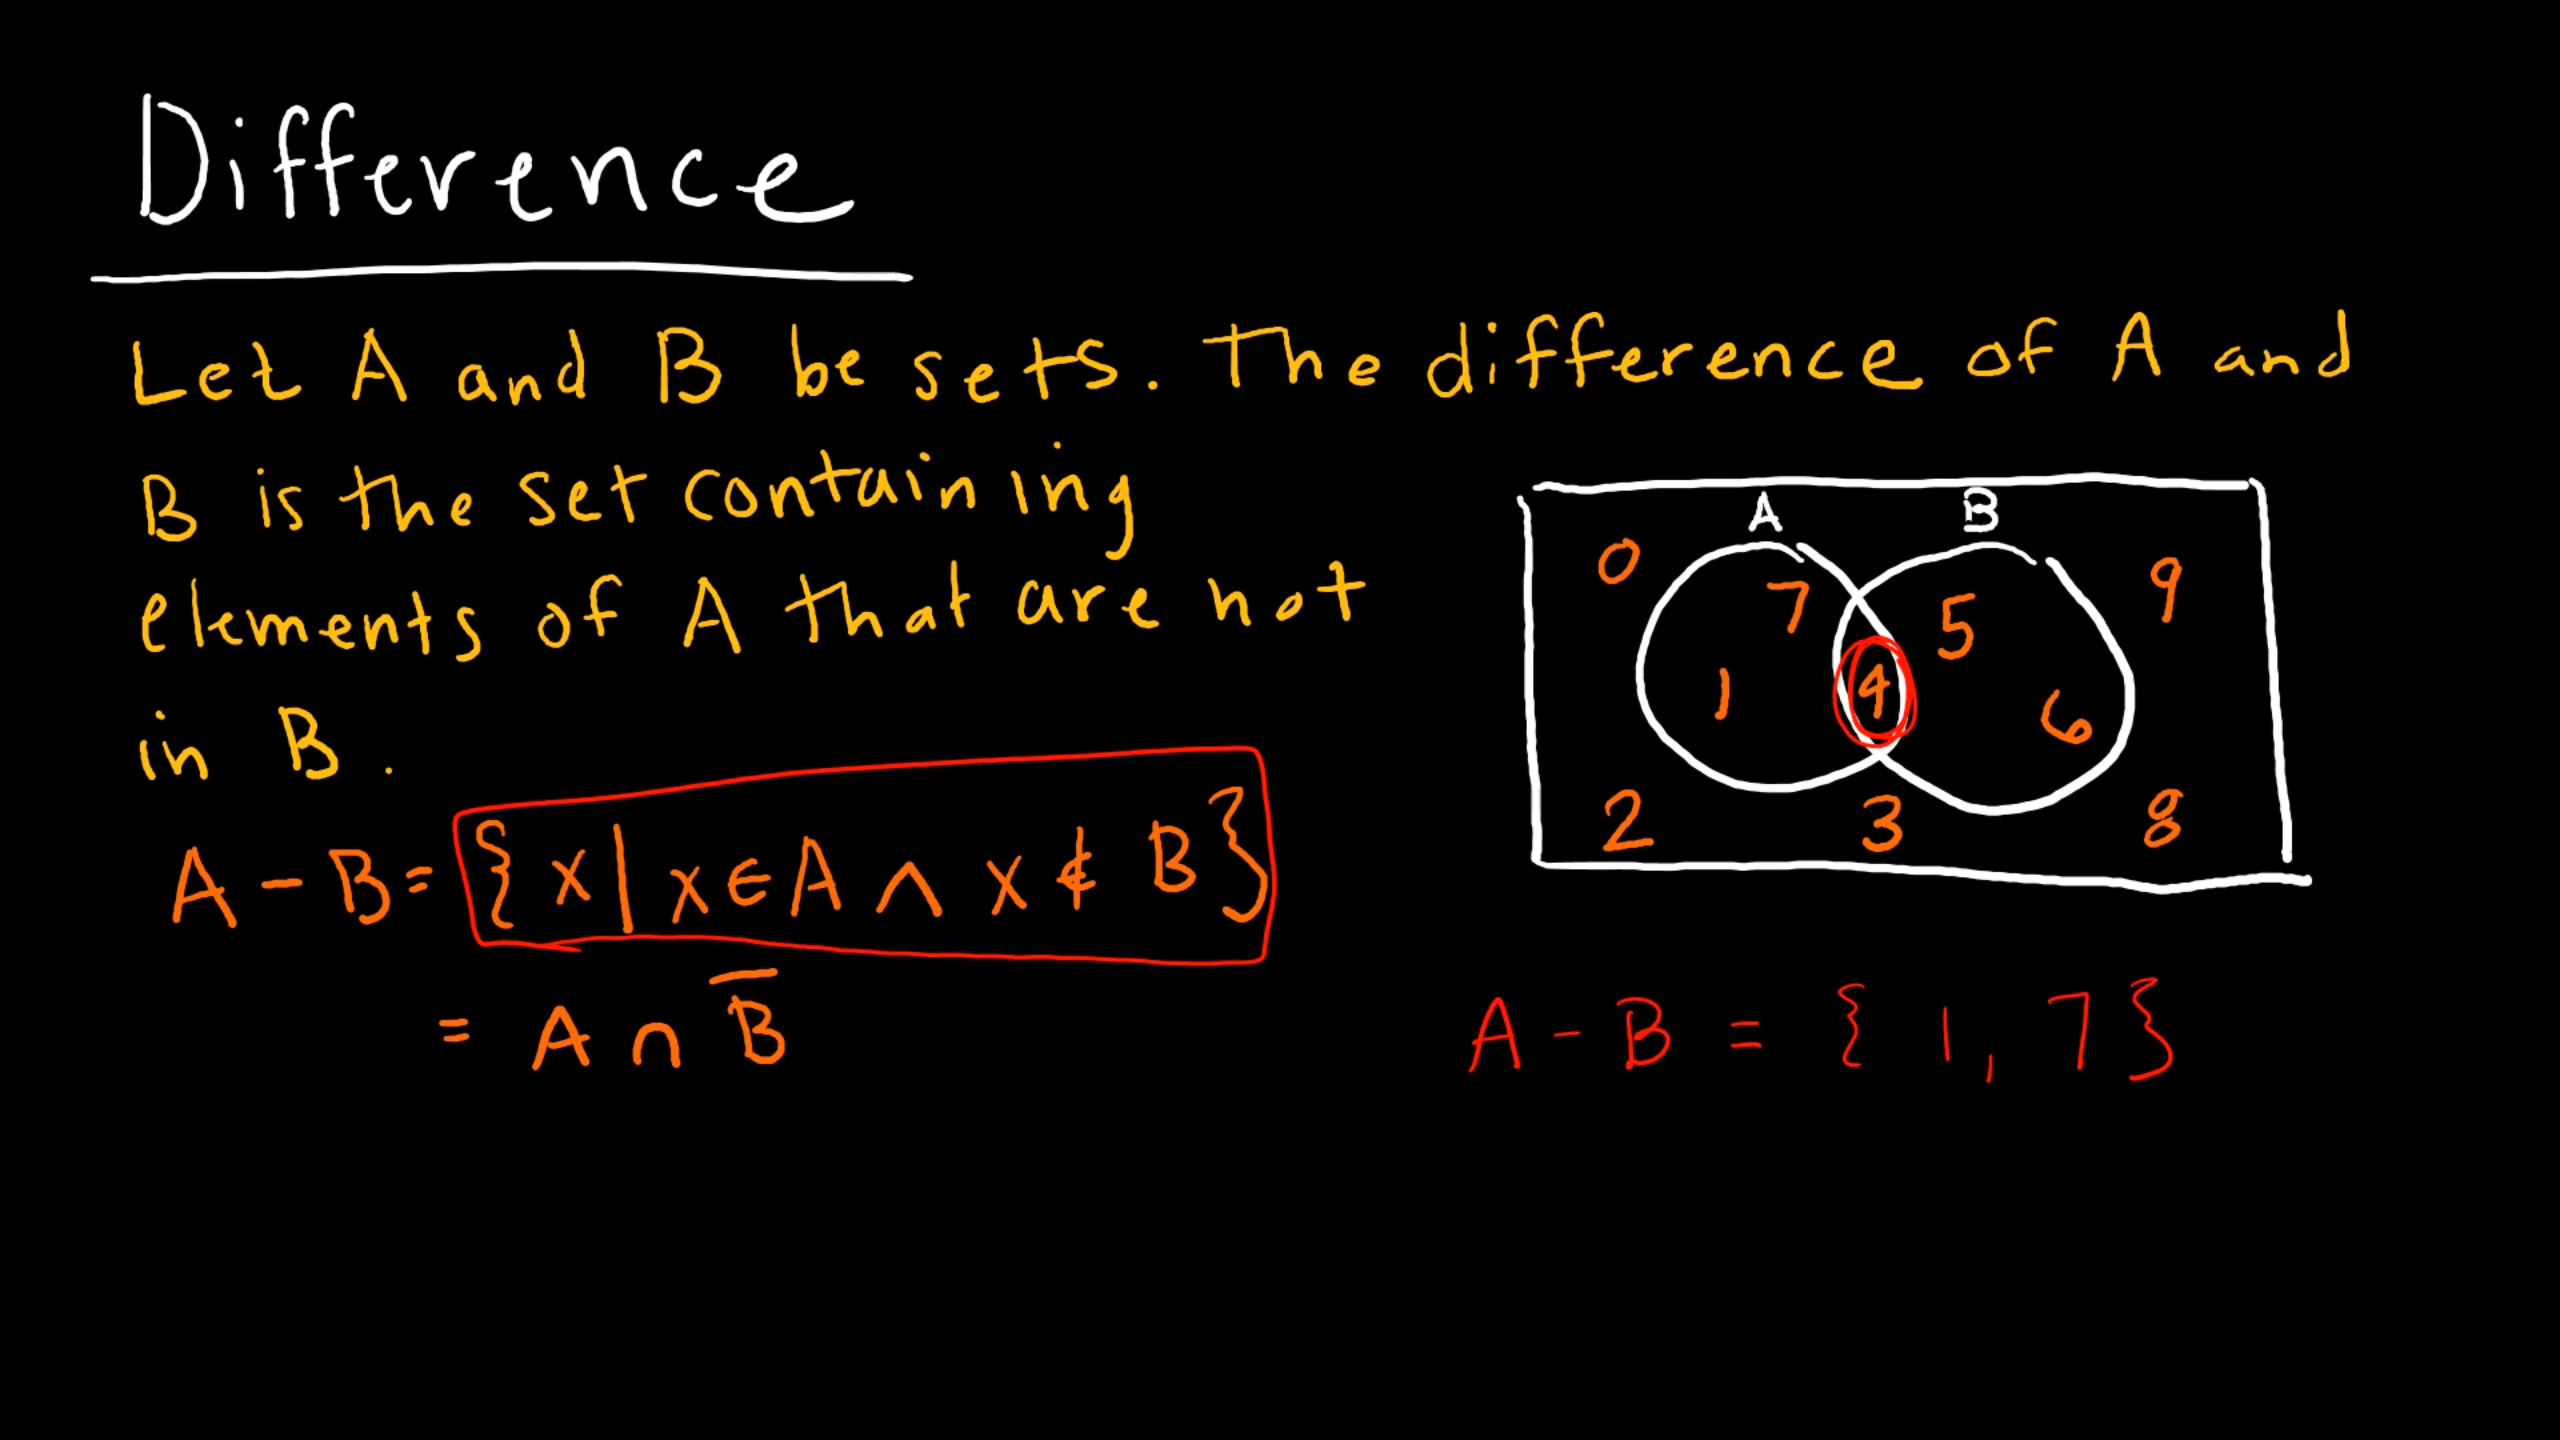 Difference
Let A and B be sets. The difference of A and
B is the set containing
elements of A that are not
in B.
A - B = { x | x ∈ A ∧ x ∉ B }
= A ∩ B̅
A B
0 7 5 9
1 4 6
2 3 8
A - B = { 1, 7 }